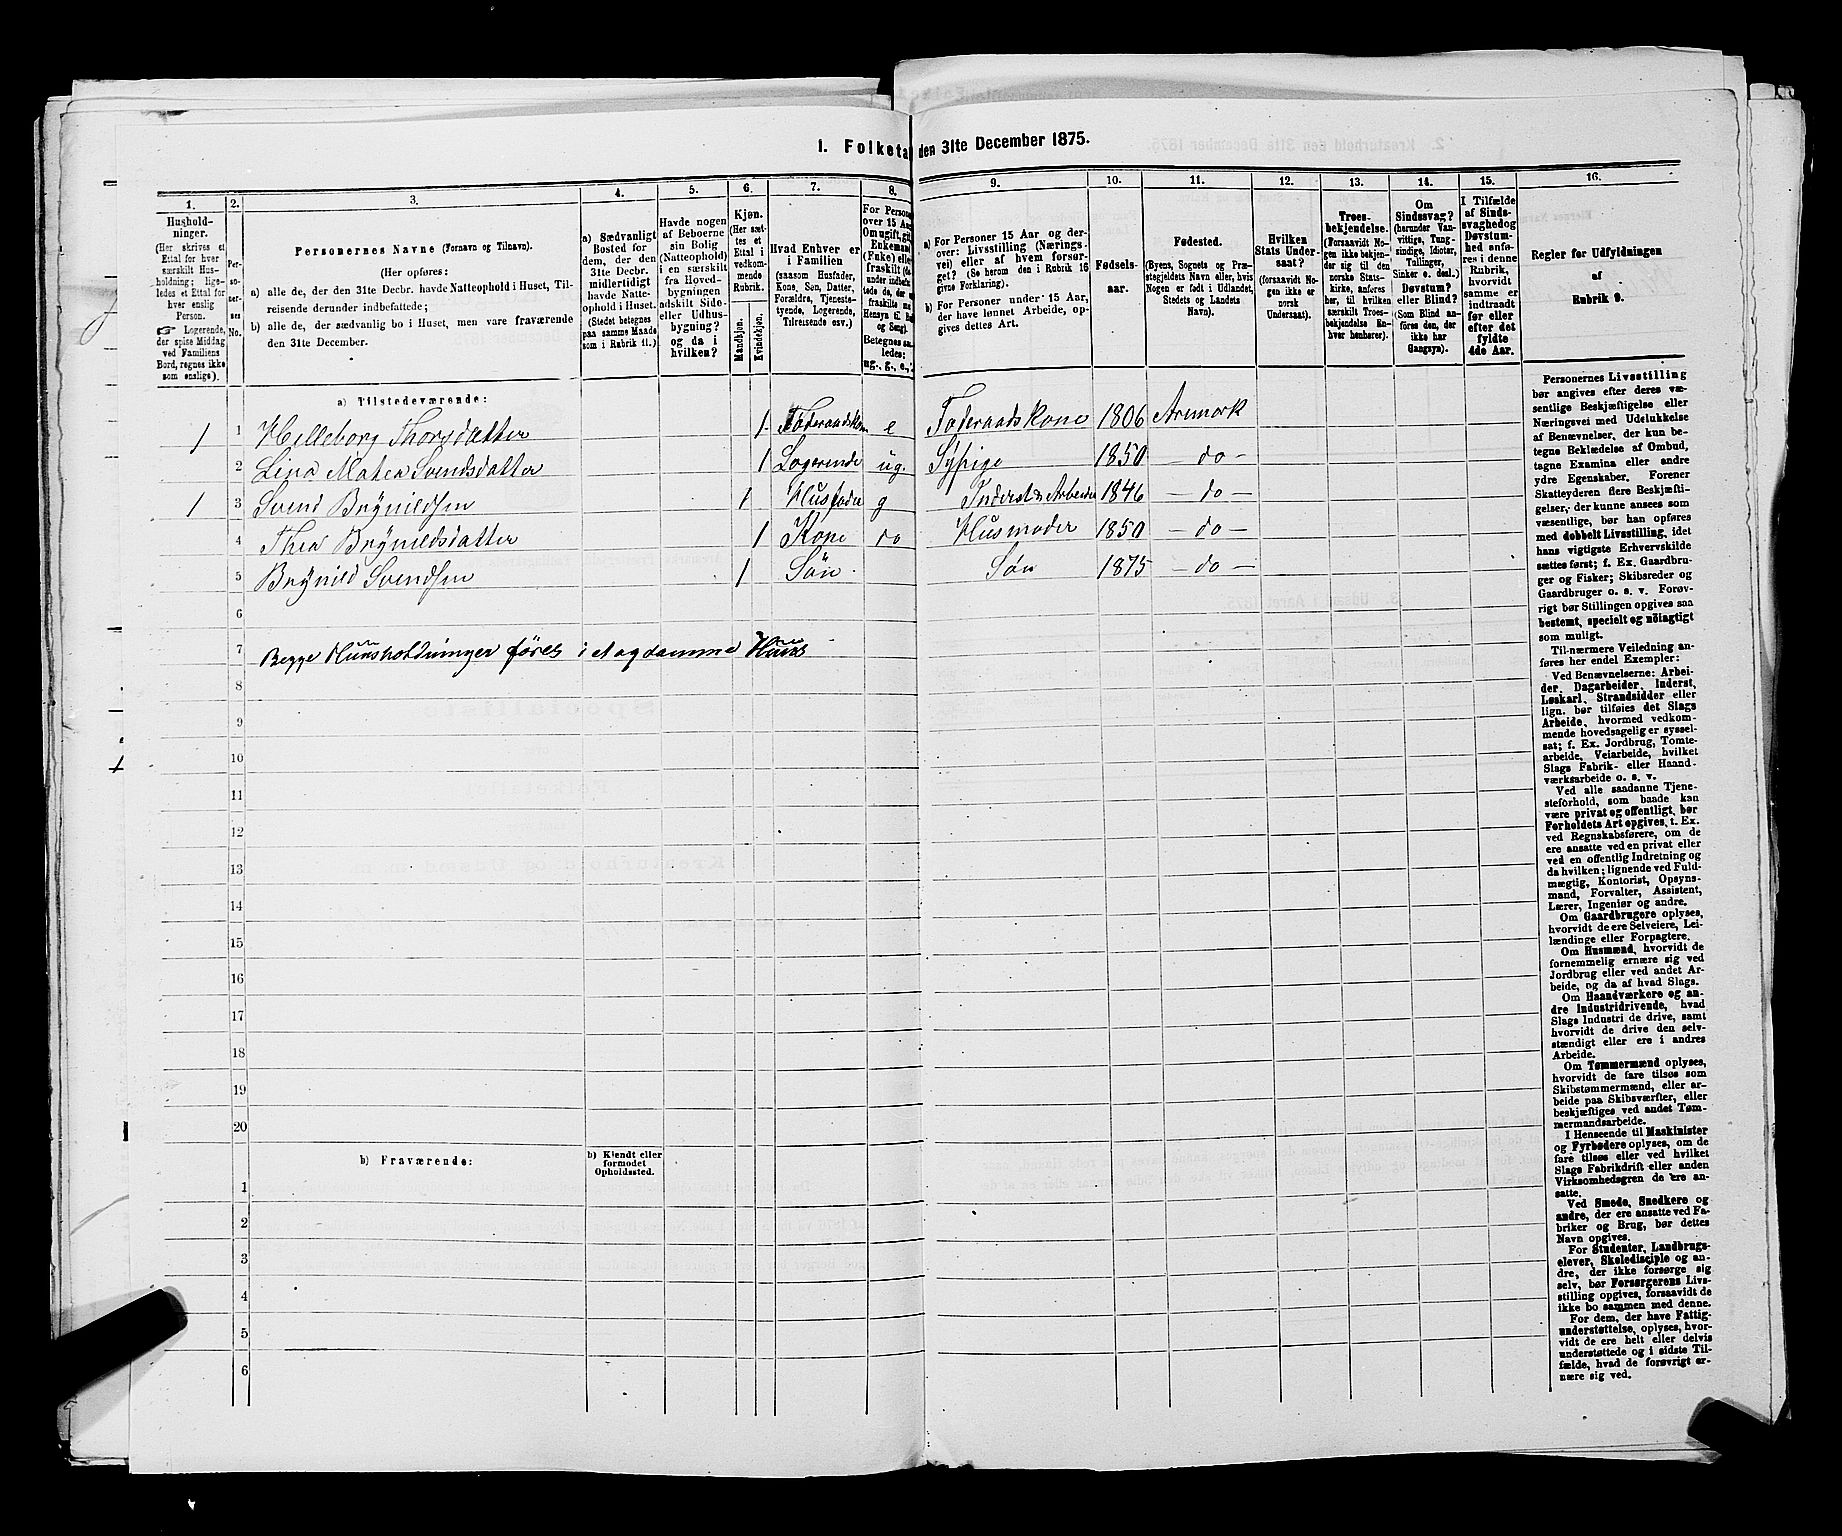 1. Folketal den 31te December 1875.
1. 2. 3. 4. 5. 6. 7. 8. 9. 10. 11. 12. 13. 14. 15. 16.
Hushold-
ninger.
(Her skrives et
Ettal for hver
særskilt Hus-
holdning; lige-
ledes et Ettal for
hver enslig
Person.
☞ Logerende,
der spise Middag
ved Familiens
Bord, regnes ikke
som enslige).
Per-
so-
ner-
nes
No.
Personernes Navne (Fornavn og Tilnavn).
(Her opføres:
a) alle de, der den 31te Decbr. havde Natteophold i Huset, Til-
reisende derunder indbefattede;
b) alle de, der sædvanlig bo i Huset, men vare fraværende
den 31te December.
a) Sædvanligt
Bosted for
dem, der den
31te Decbr.
midlertidigt
havde Natte-
ophold i Huset.
(Stedet betegnes
paa samme Maade
som i Rubrik 11.)
Havde nogen
af Beboerne
sin Bolig
(Natteophold)
i en særskilt
fra Hoved-
bygningen
adskilt Side-
eller Udhus-
bygning?
og da i
hvilken?
Kjøn.
(Her sæt-
tes et
Ettal i
vedkom-
mende
Rubrik.
Mandkjøn.
Kvindekjøn.
Hvad Enhver er
i Familien
(saasom Husfader,
Kone, Søn, Datter,
Forældre, Tjeneste-
tyende, Logerende,
Tilreisende osv.)
For Person
over 15 Aar
Om ugift, gift
Enkemand
(Enke) eller
fraskilt (de
under indbefat-
tede de, der
fraskilte m.
Hensyn til Bord
og Seng).
Betegnes saa-
ledes:
ug., g., e.,
a) For Personer 15 Aar og der-
over: Livsstilling (Nærings-
vei) eller af hvem forsør-
get? (Se herom den i Rubrik 16
givne Forklaring).
b) For Personer under 15 Aar,
der have lønnet Arbeide, op-
gives dettes Art.
Fødsels-
aar.
Fødested.
(Byens, Sognets og Præ-
stegjeldets Navn eller, hvis
Nogen er født i Udlandet,
Stedets og Landets
Navn).
Hvilken
Stats Under-
saat?
(forsaavidt No-
gen ikke er
norsk
Undersaat).
Troes-
bekjendelse.
(Forsaavidt No-
gen ikke bekjen-
der sig til den
norske Stats-
kirke, anføres
her, til hvilken
særskilt Troes-
bekjendelse En-
hver henhører).
Om
Sindssvag?
(herunder Van-
vittige, Tung-
sindige, Idioter,
Tullinger,
Sinker o. desl.)
Døvstum?
eller Blind?
(Som Blind an-
føres den, der
ikke har
Gangsyn).
I Tilfælde
af Sinds-
svaghed og
Døvstum-
hed anfø-
res i denne
Rubrik,
hvorvidt
samme er
indtraadt
før eller
efter det
fyldte
4de Aar.
Regler for Udfyldningen
af
Rubrik 9.
a) Tilstedeværende:
1 1 Helleborg Thorsdatter 1 Føderaadskone e Føderaadskone 1806 Aremark
2 Lina Mathea Svendsdatter 1 Logerende ug. Sypige 1850 — do —
1 3 Svend Brynildsen 1 Husfader g Inderst og Arbeider 1846 — do —
4 Thea Brynildsdatter 1 Kone do Husmoder 1850 — do —
5 Brynild Svendsen 1 Søn Søn 1875 — do —
6
7 Begge Huusholdninger føres i et og samme Huus
8
9
10
11
12
13
14
15
16
17
18
19
20
b) Fraværende:
b) Kjendt eller
formodet
Opholdssted.
1
2
3
4
5
6
Personernes Livsstilling
bør angives efter deres væ-
sentlige Beskjæftigelse eller
Næringsvei med Udelukkelse
af Benævnelser, der kun be-
tegne Beklædelse af Ombud,
tagne Examina eller andre
ydre Egenskaber. Forener
Skatteyderen flere Beskjæfti-
gelser, der kunne ansees som
væsentlige, bør han opføres
med dobbelt Livsstilling, idet
hans vigtigste Erhvervskilde
sættes først; f. Ex. Gaardbru-
ger og Fisker; Skibsreder og
Gaardbruger o. s. v. Forøv-
rigt bør Stillingen opgives saa
bestemt, specielt og nøiagtigt
som muligt.
Til nærmere Veiledning an-
føres her endel Exempler:
Ved Benævnelserne: Arbei-
der, Dagarbeider, Inderst,
Løskarl, Strandsidder eller
lign. bør tilføies det Slags
Arbeide, hvormed vedkom-
mende hovedsagelig er syssel-
sat; f. Ex. Jordbrug, Tomte-
arbeide, Veiarbeide, hvilket
Slags Fabrik- eller Haand-
værksarbeide o. s. v.
Ved alle saadanne Tjene-
steforhold, som baade kan
være privat og offentligt, bør
Forholdets Art opgives, f. Ex.
ved Regnskabsførere, om de
ere ansatte ved en privat eller
ved en offentlig Indretning og
da hvilken; lignende ved Fuld-
mægtig, Kontorist, Opsyns-
mand, Forvalter, Assistent,
Lærer, Ingeniør og andre.
Om Gaardbrugere oplyses,
hvorvidt de ere Selveiere, Lei-
lændinge eller Forpagtere.
Om Husmænd, hvorvidt de
fornemmelig ernære sig ved
Jordbrug eller ved andet Ar-
beide, og da af hvad Slags.
Om Haandværkere og an-
dre Industridrivende, hvad
Slags Industri de drive, samt
hvorvidt de drive den selv-
stændigt eller ere i andres
Arbeide.
Om Tømmermænd oplyses,
hvorvidt de fare tilsøs som
Skibstømmermænd, eller ar-
beide paa Skibsværfter, eller
beskjæftiges ved andet Tøm-
mermandsarbeide.
I Henseende til Maskinister
og Fyrbødere oplyses, om de
fare tilsøs eller ved hvilket
Slags Fabrikdrift eller anden
Virksomhedsgren de ere an-
satte.
Ved Smede, Snedkere og
andre, der ere ansatte ved Fa-
briker og Brug, bør dettes
Navn opgives.
For Studenter, Landbrugs-
elever, Skoledisciple og an-
dre, der ikke forsørge sig
selv, bør Forsørgerens Livs-
stilling opgives, forsaavidt de
ikke bo sammen med denne.
For dem, der have Fattig-
understøttelse, oplyses, hvor-
vidt de ere helt eller delvis
understøttede og i sidste Til-
fælde, hvad de forøvrigt er-
nære sig ved.